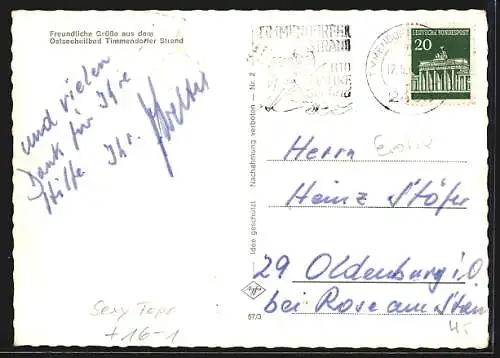 Freundliche Grüße aus dem
Ostseeheilbad Timmendorfer Strand
und vielen
Dank für Ihre
Hilfe Ihr.
TIMMENDORFER
STRAND
DEUTSCHE BUNDESPOST
20
Idee geschützt Nachahmung verboten — Nr. 2
Herrn Erotik
Heinz Stöfer
29 Oldenburg i.O
bei Rose am Stau
Sexy Topo
+16-1
57/3